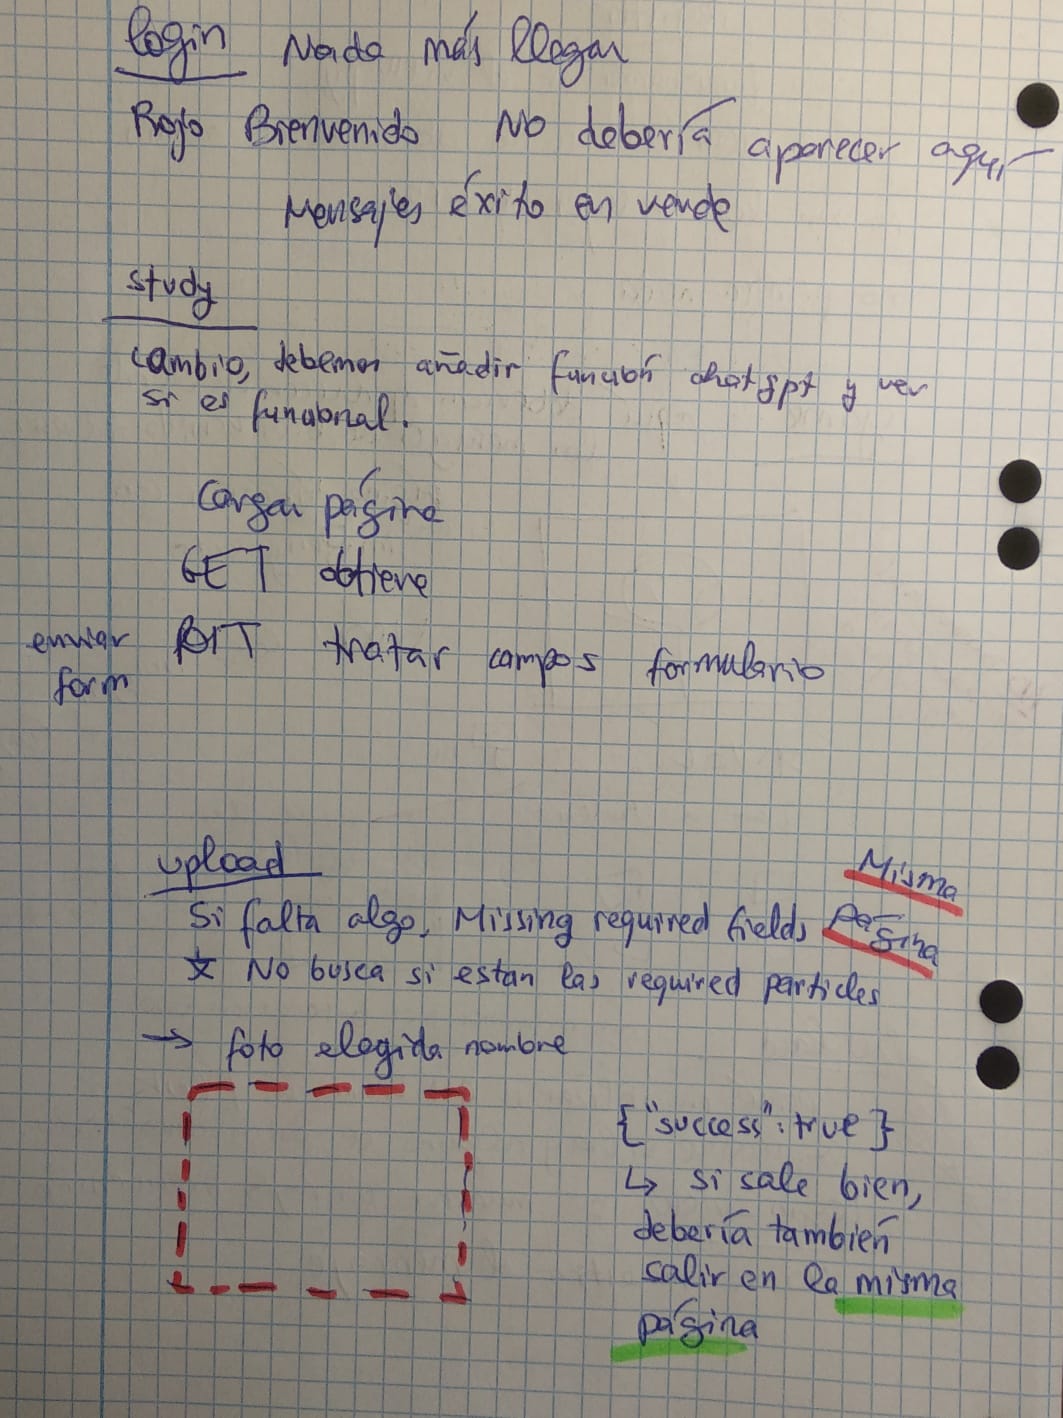 login Nada más llegar
Rojo Bienvenido No debería aparecer aquí
Mensajes éxito en verde
study
cambio, debemos añadir función chatgpt y ver
si es funcional.
Cargar página
GET obtiene
enviar form POST tratar campos formulario
upload
Si falta algo, Missing required fields Misma página
* No busca si estan las required particles
→ foto elegida nombre
{"success": true}
↳ si sale bien,
debería también
salir en la misma
página